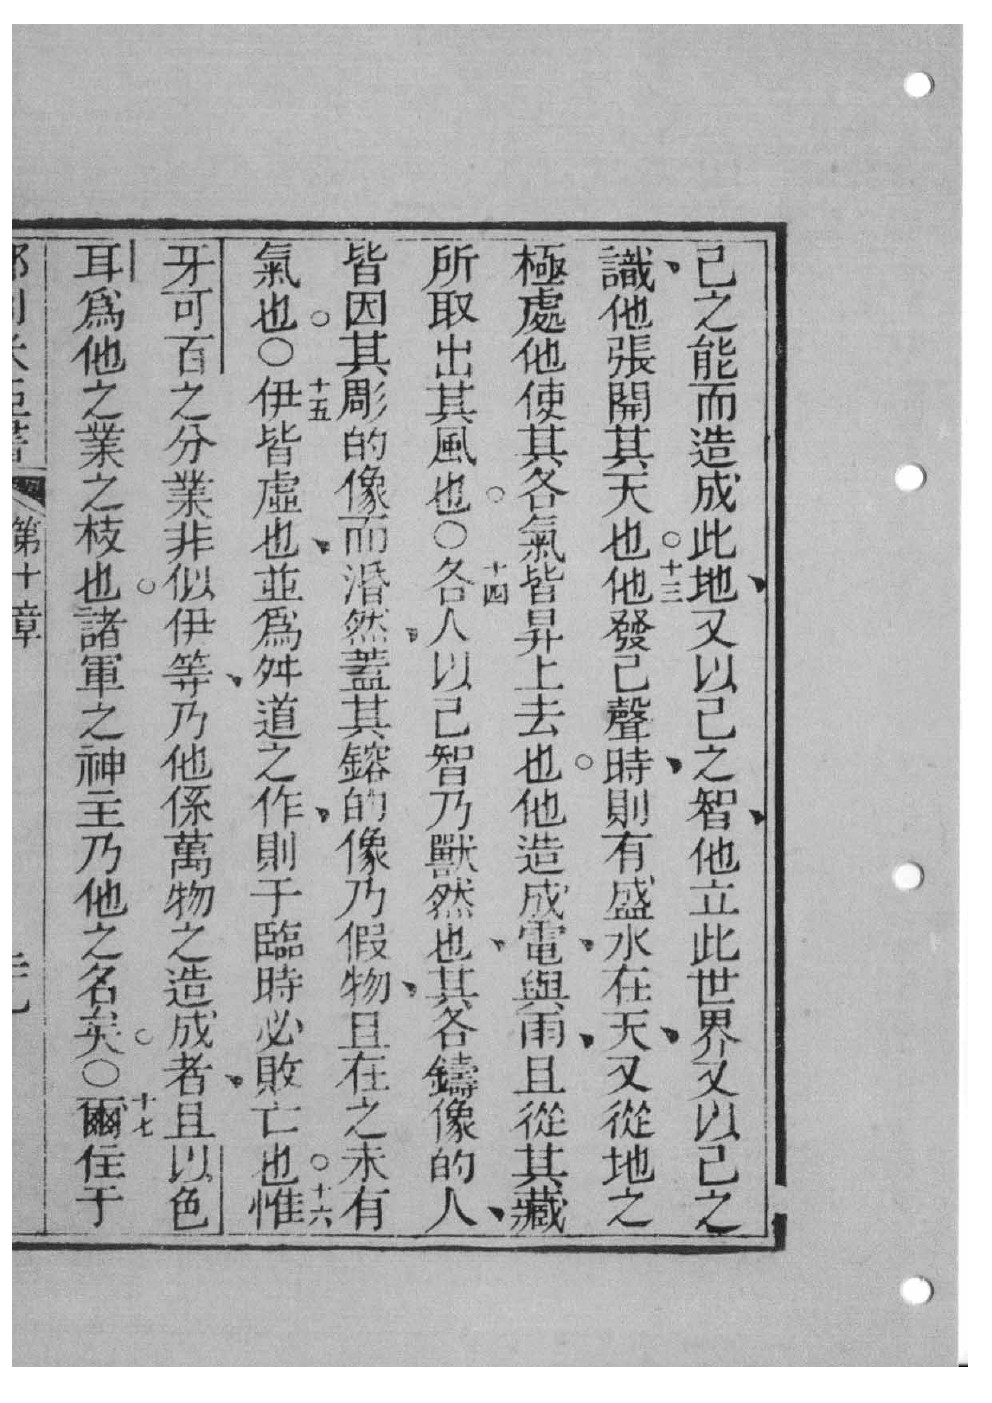 己之能而造成此地、又以己之智、他立此世界又以己之
識、他張開其天也。十三他發己聲時、則有盛水在天、又從地之
極處他使其各氣皆昇上去也。他造成電、與雨、且從其藏
所取出其風也。○十四各人以己智乃獸然也、其各鑄像的人、
皆因其彫的像而㨉然、蓋其鎔的像乃假物、且在之未有
氣也。○十五伊皆虛也、並為舛道之作、則于臨時必敗亡也。十六惟
牙可百之分業非似伊等、乃他係萬物之造成者、且以色
耳為他之業之枝也。諸軍之神主乃他之名矣。○十七爾住于
第十章